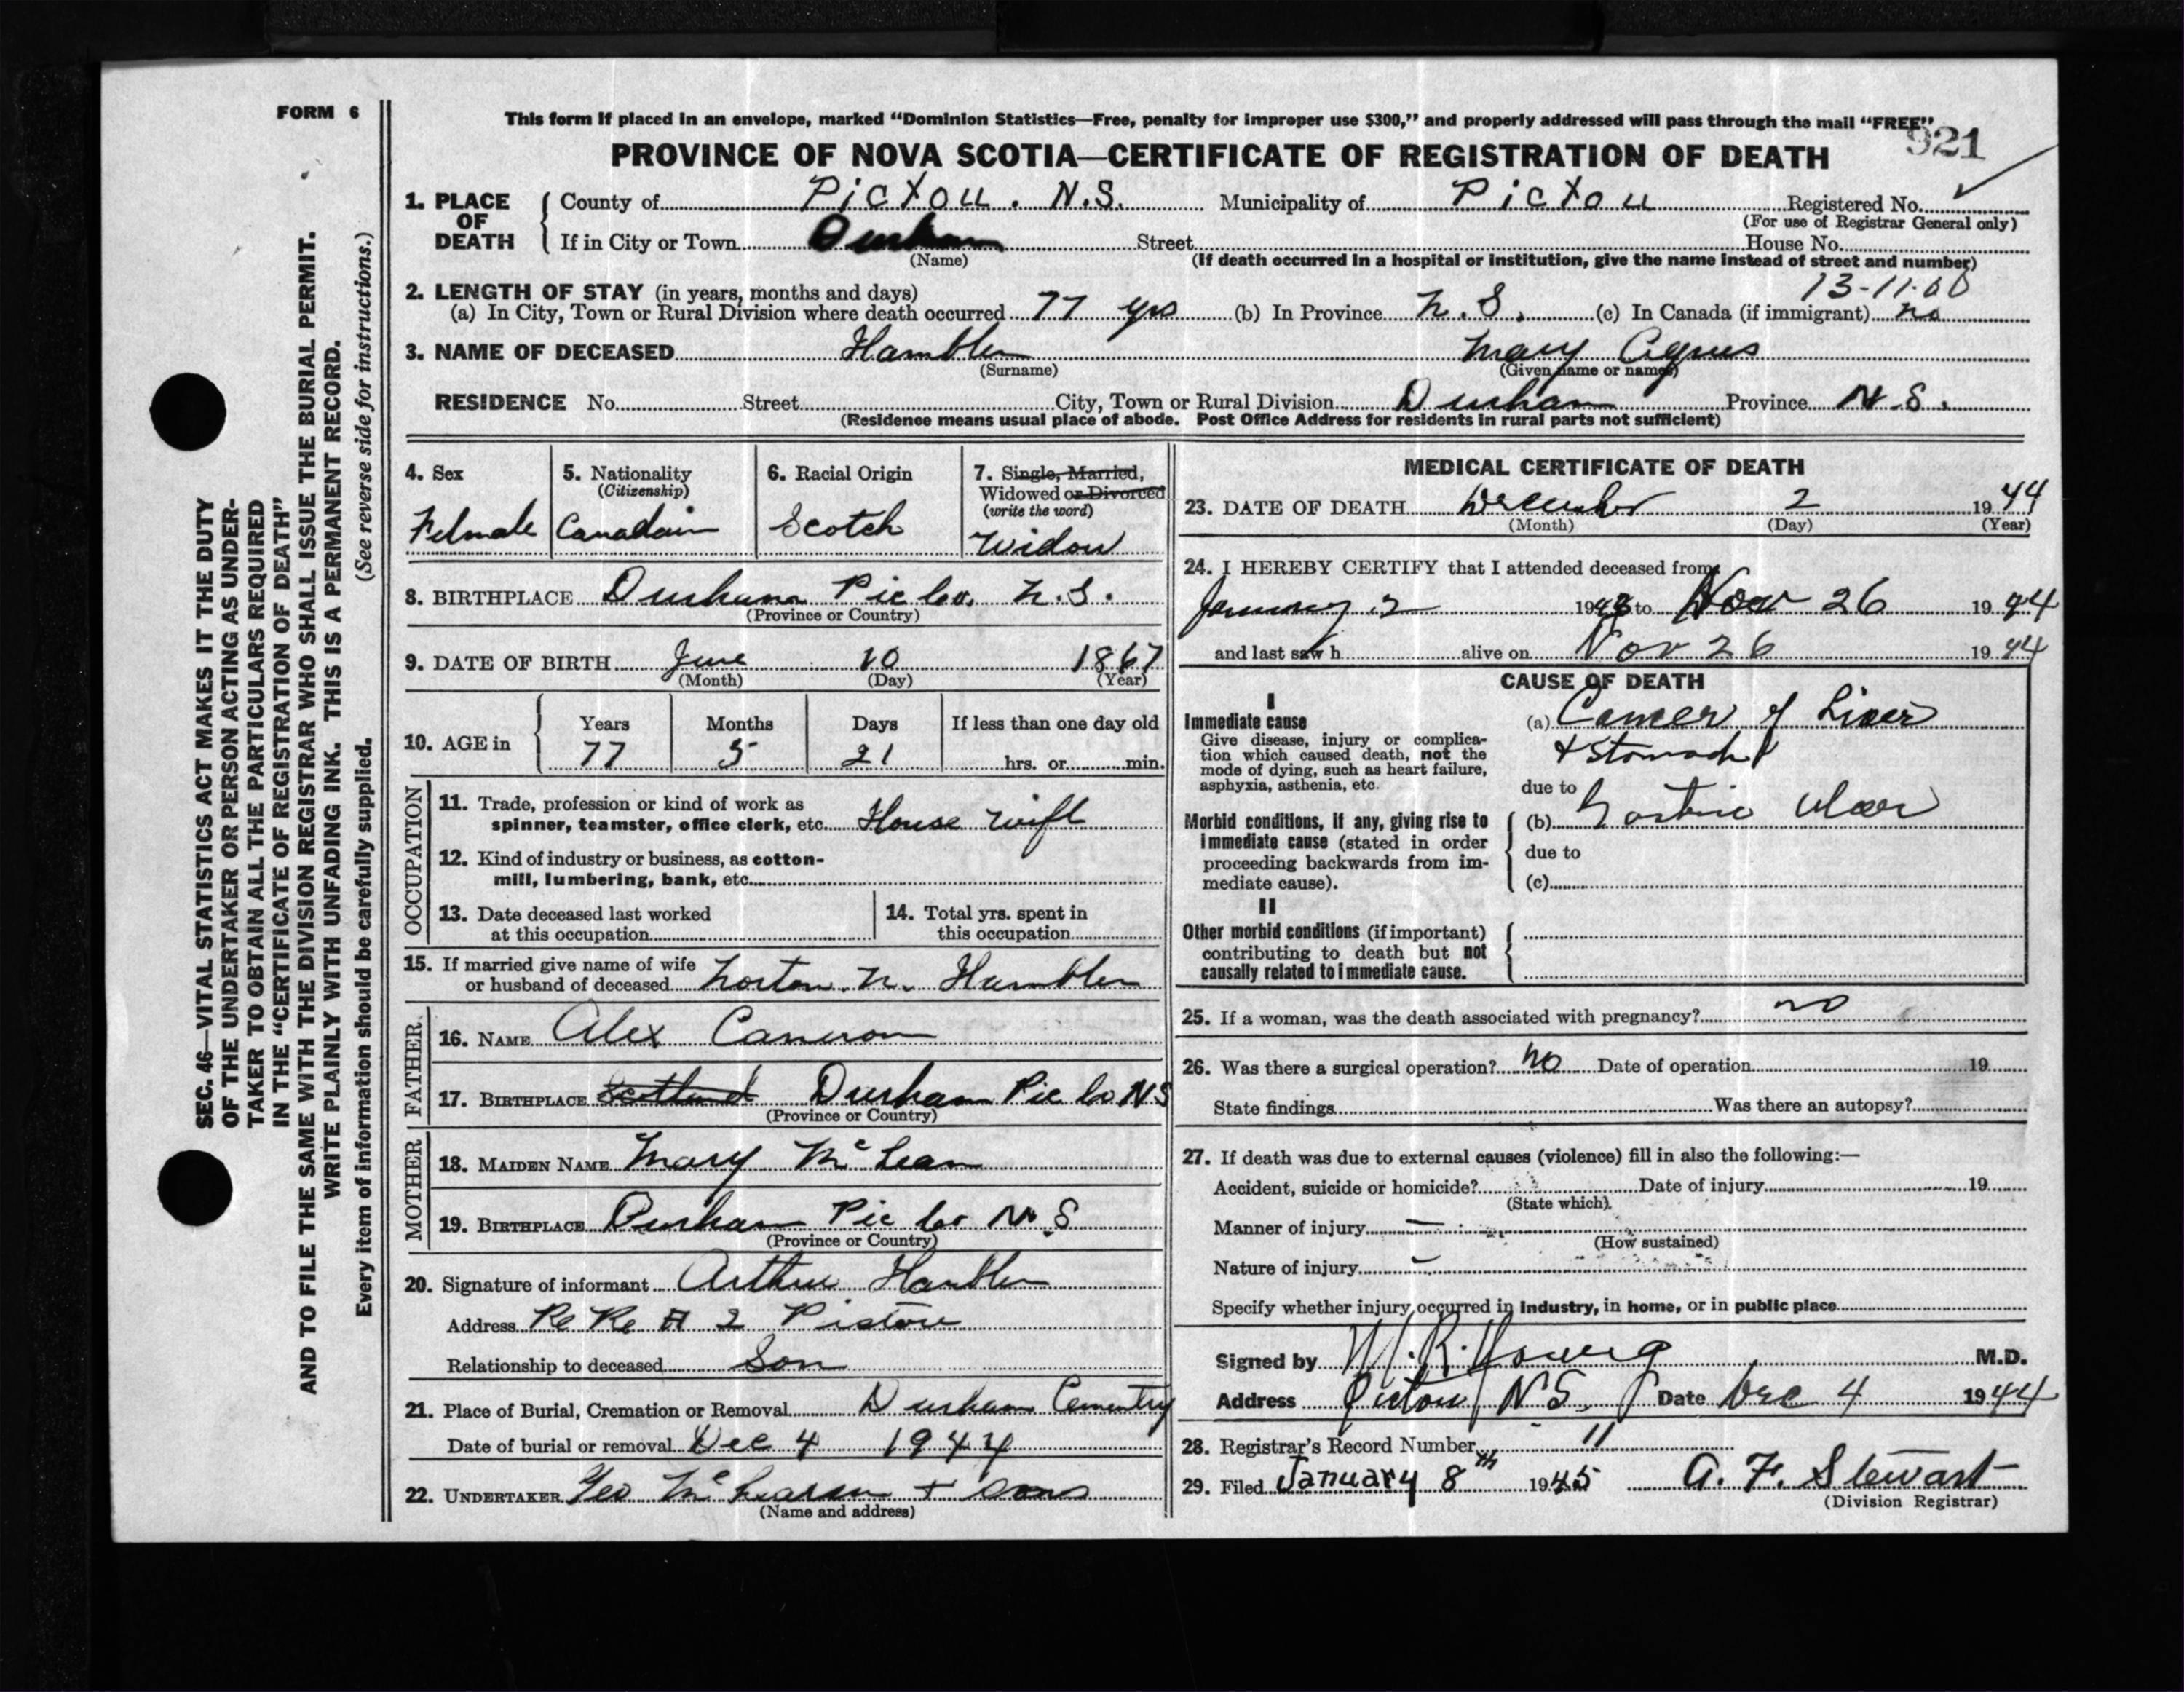 FORM 6
This form if placed in an envelope, marked "Dominion Statistics—Free, penalty for improper use $300," and properly addressed will pass through the mail "FREE"
921
PROVINCE OF NOVA SCOTIA—CERTIFICATE OF REGISTRATION OF DEATH
1. PLACE OF DEATH County of Pictou. N.S. Municipality of Pictou Registered No.
(For use of Registrar General only)
If in City or Town Durham Street House No.
(Name) (If death occurred in a hospital or institution, give the name instead of street and number)
13-11-00
2. LENGTH OF STAY (in years, months and days)
(a) In City, Town or Rural Division where death occurred 77 yrs (b) In Province N.S. (c) In Canada (if immigrant) no
3. NAME OF DECEASED Hamblen Mary Agnes
(Surname) (Given name or names)
RESIDENCE No. Street City, Town or Rural Division Durham Province N.S.
(Residence means usual place of abode. Post Office Address for residents in rural parts not sufficient)
4. Sex 5. Nationality 6. Racial Origin 7. Single, Married,
(Citizenship) Widowed or Divorced
(write the word)
Felmale Canadain Scotch Widow
8. BIRTHPLACE Durham Pic Co. N.S.
(Province or Country)
9. DATE OF BIRTH June 10 1867
(Month) (Day) (Year)
10. AGE in Years Months Days If less than one day old
77 5 21 hrs. or min.
OCCUPATION
11. Trade, profession or kind of work as
spinner, teamster, office clerk, etc. House wife
12. Kind of industry or business, as cotton-
mill, lumbering, bank, etc.
13. Date deceased last worked
at this occupation
14. Total yrs. spent in
this occupation
15. If married give name of wife
or husband of deceased Norton N. Hamblen
FATHER
16. NAME Alex Cameron
17. BIRTHPLACE Scotland Durham Pic Co NS
(Province or Country)
MOTHER
18. MAIDEN NAME Mary McLean
19. BIRTHPLACE Durham Pic Co N.S
(Province or Country)
20. Signature of informant Arthur Hamblen
Address R R # 2 Pictou
Relationship to deceased Son
21. Place of Burial, Cremation or Removal Durham Cementry
Date of burial or removal Dec 4 1944
22. UNDERTAKER Geo & Sons
(Name and address)
MEDICAL CERTIFICATE OF DEATH
23. DATE OF DEATH December 2 1944
(Month) (Day) (Year)
24. I HEREBY CERTIFY that I attended deceased from
January 2 1943 to Nov 26 1944
and last saw h alive on Nov 26 1944
CAUSE OF DEATH
I
Immediate cause
Give disease, injury or complica-
tion which caused death, not the
mode of dying, such as heart failure,
asphyxia, asthenia, etc.
(a) Cancer of Liver
& Stomach
due to
Morbid conditions, if any, giving rise to
immediate cause (stated in order
proceeding backwards from im-
mediate cause).
(b) Gastric Ulcer
due to
(c)
II
Other morbid conditions (if important)
contributing to death but not
causally related to immediate cause.
25. If a woman, was the death associated with pregnancy? no
26. Was there a surgical operation? no Date of operation 19
State findings Was there an autopsy?
27. If death was due to external causes (violence) fill in also the following:—
Accident, suicide or homicide? Date of injury 19
(State which).
Manner of injury —
(How sustained)
Nature of injury —
Specify whether injury occurred in industry, in home, or in public place
Signed by M.R. Young M.D.
Address Pictou N.S. Date Dec 4 1944
28. Registrar's Record Number 11
29. Filed January 8th 1945 A. F. Stewart
(Division Registrar)
SEC. 46—VITAL STATISTICS ACT MAKES IT THE DUTY
OF THE UNDERTAKER OR PERSON ACTING AS UNDER-
TAKER TO OBTAIN ALL THE PARTICULARS REQUIRED
IN THE "CERTIFICATE OF REGISTRATION OF DEATH"
AND TO FILE THE SAME WITH THE DIVISION REGISTRAR WHO SHALL ISSUE THE BURIAL PERMIT.
WRITE PLAINLY WITH UNFADING INK. THIS IS A PERMANENT RECORD.
Every item of information should be carefully supplied. (See reverse side for instructions.)